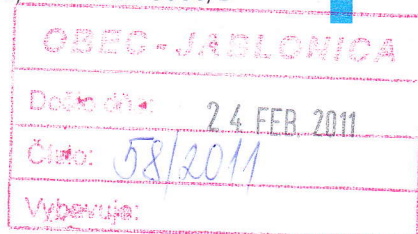 OBEC - JABLONICA
Došlo dňa:
24 FEB. 2011
Číslo: 58/2011
Vybavuje: